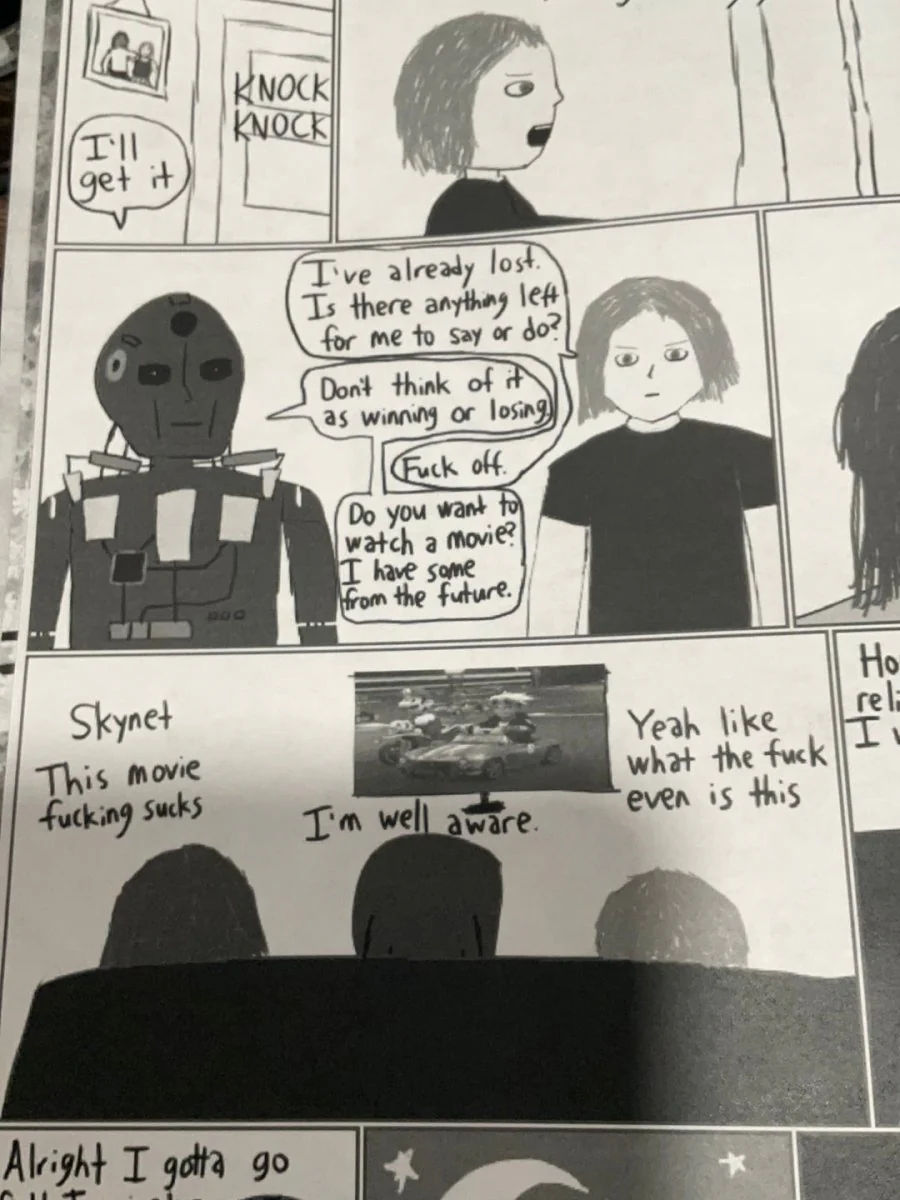 KNOCK
KNOCK
I'll
get it
I've already lost.
Is there anything left
for me to say or do?
Don't think of it
as winning or losing
Fuck off.
Do you want to
watch a movie?
I have some
from the future.
Skynet
This movie
fucking sucks
I'm well aware.
Yeah like
what the fuck
even is this
Ho
reli
I
Alright I gotta go